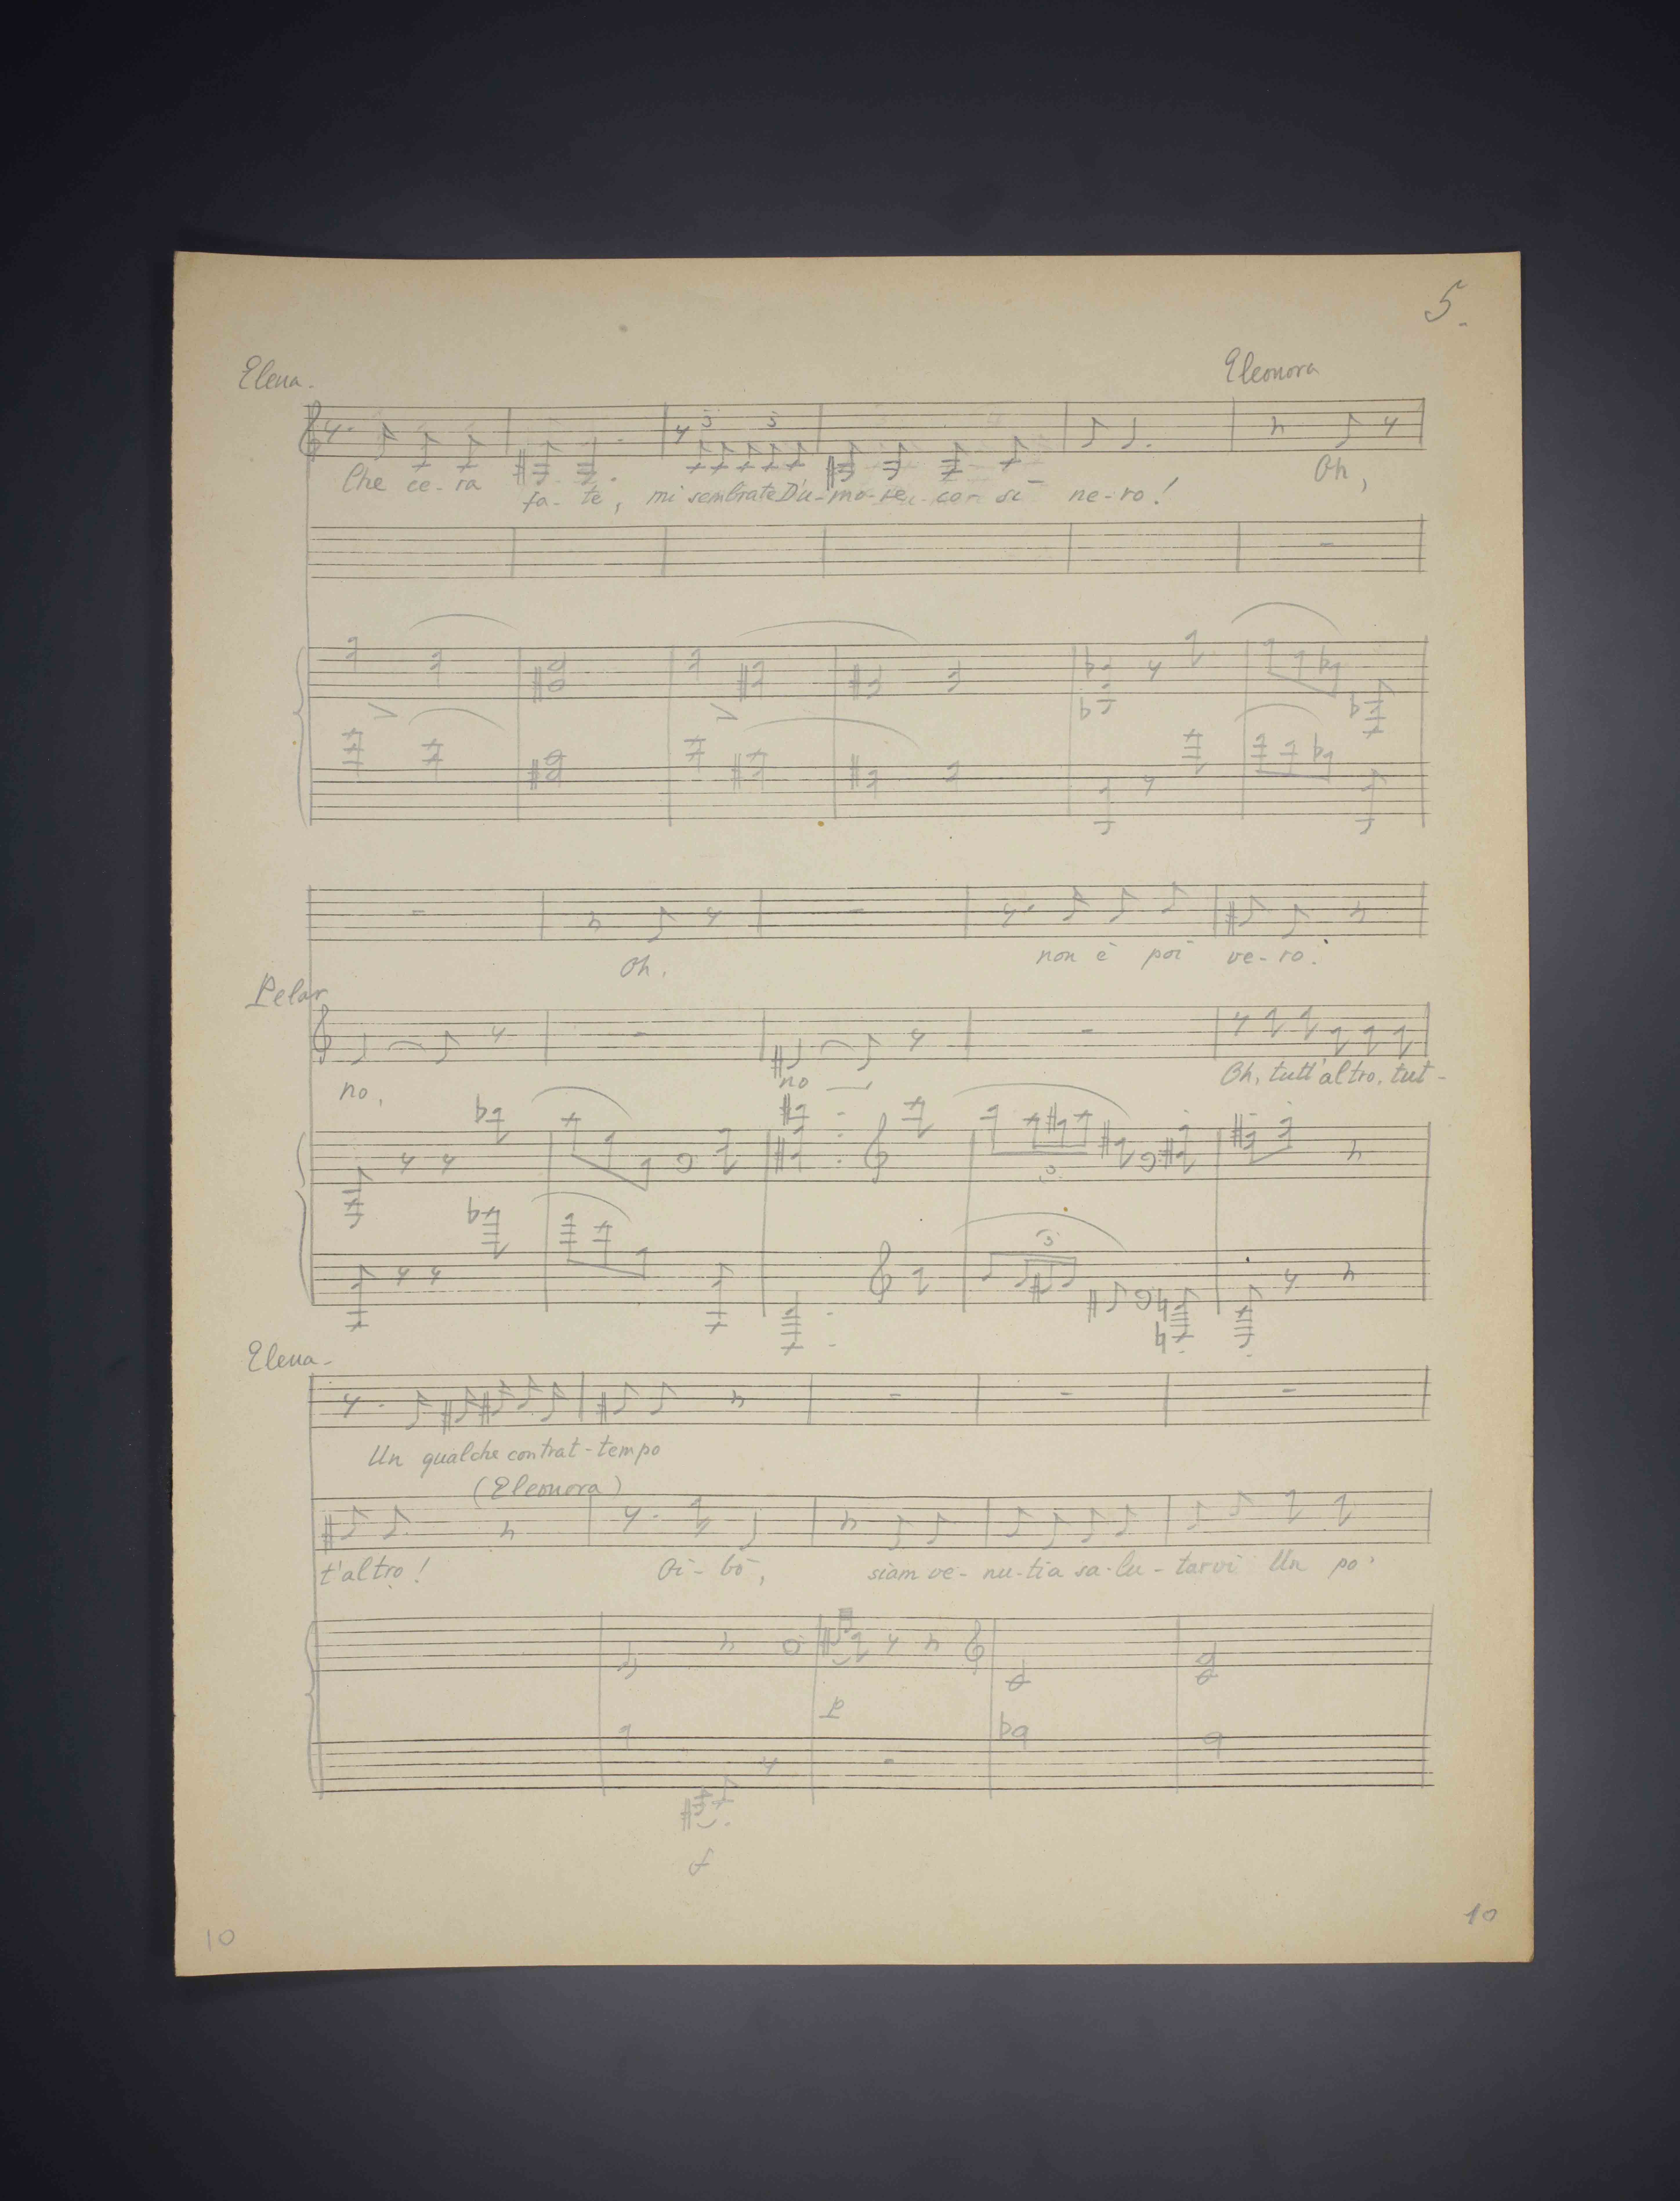 5.
Elena. Eleonora
3 3
Che ce-ra fa-te, mi sembrate D'u-mo-re cor sì ne-ro! Oh,
Oh, non è poi ve-ro!
Pelar
no, no Oh, tutt'altro, tut-
3
3
Elena-
Un qualche contrat-tempo
(Eleonora)
t'altro! Oi-bò, siam ve-nu-ti a sa-lu-tarvi Un po'
p
f
10 10